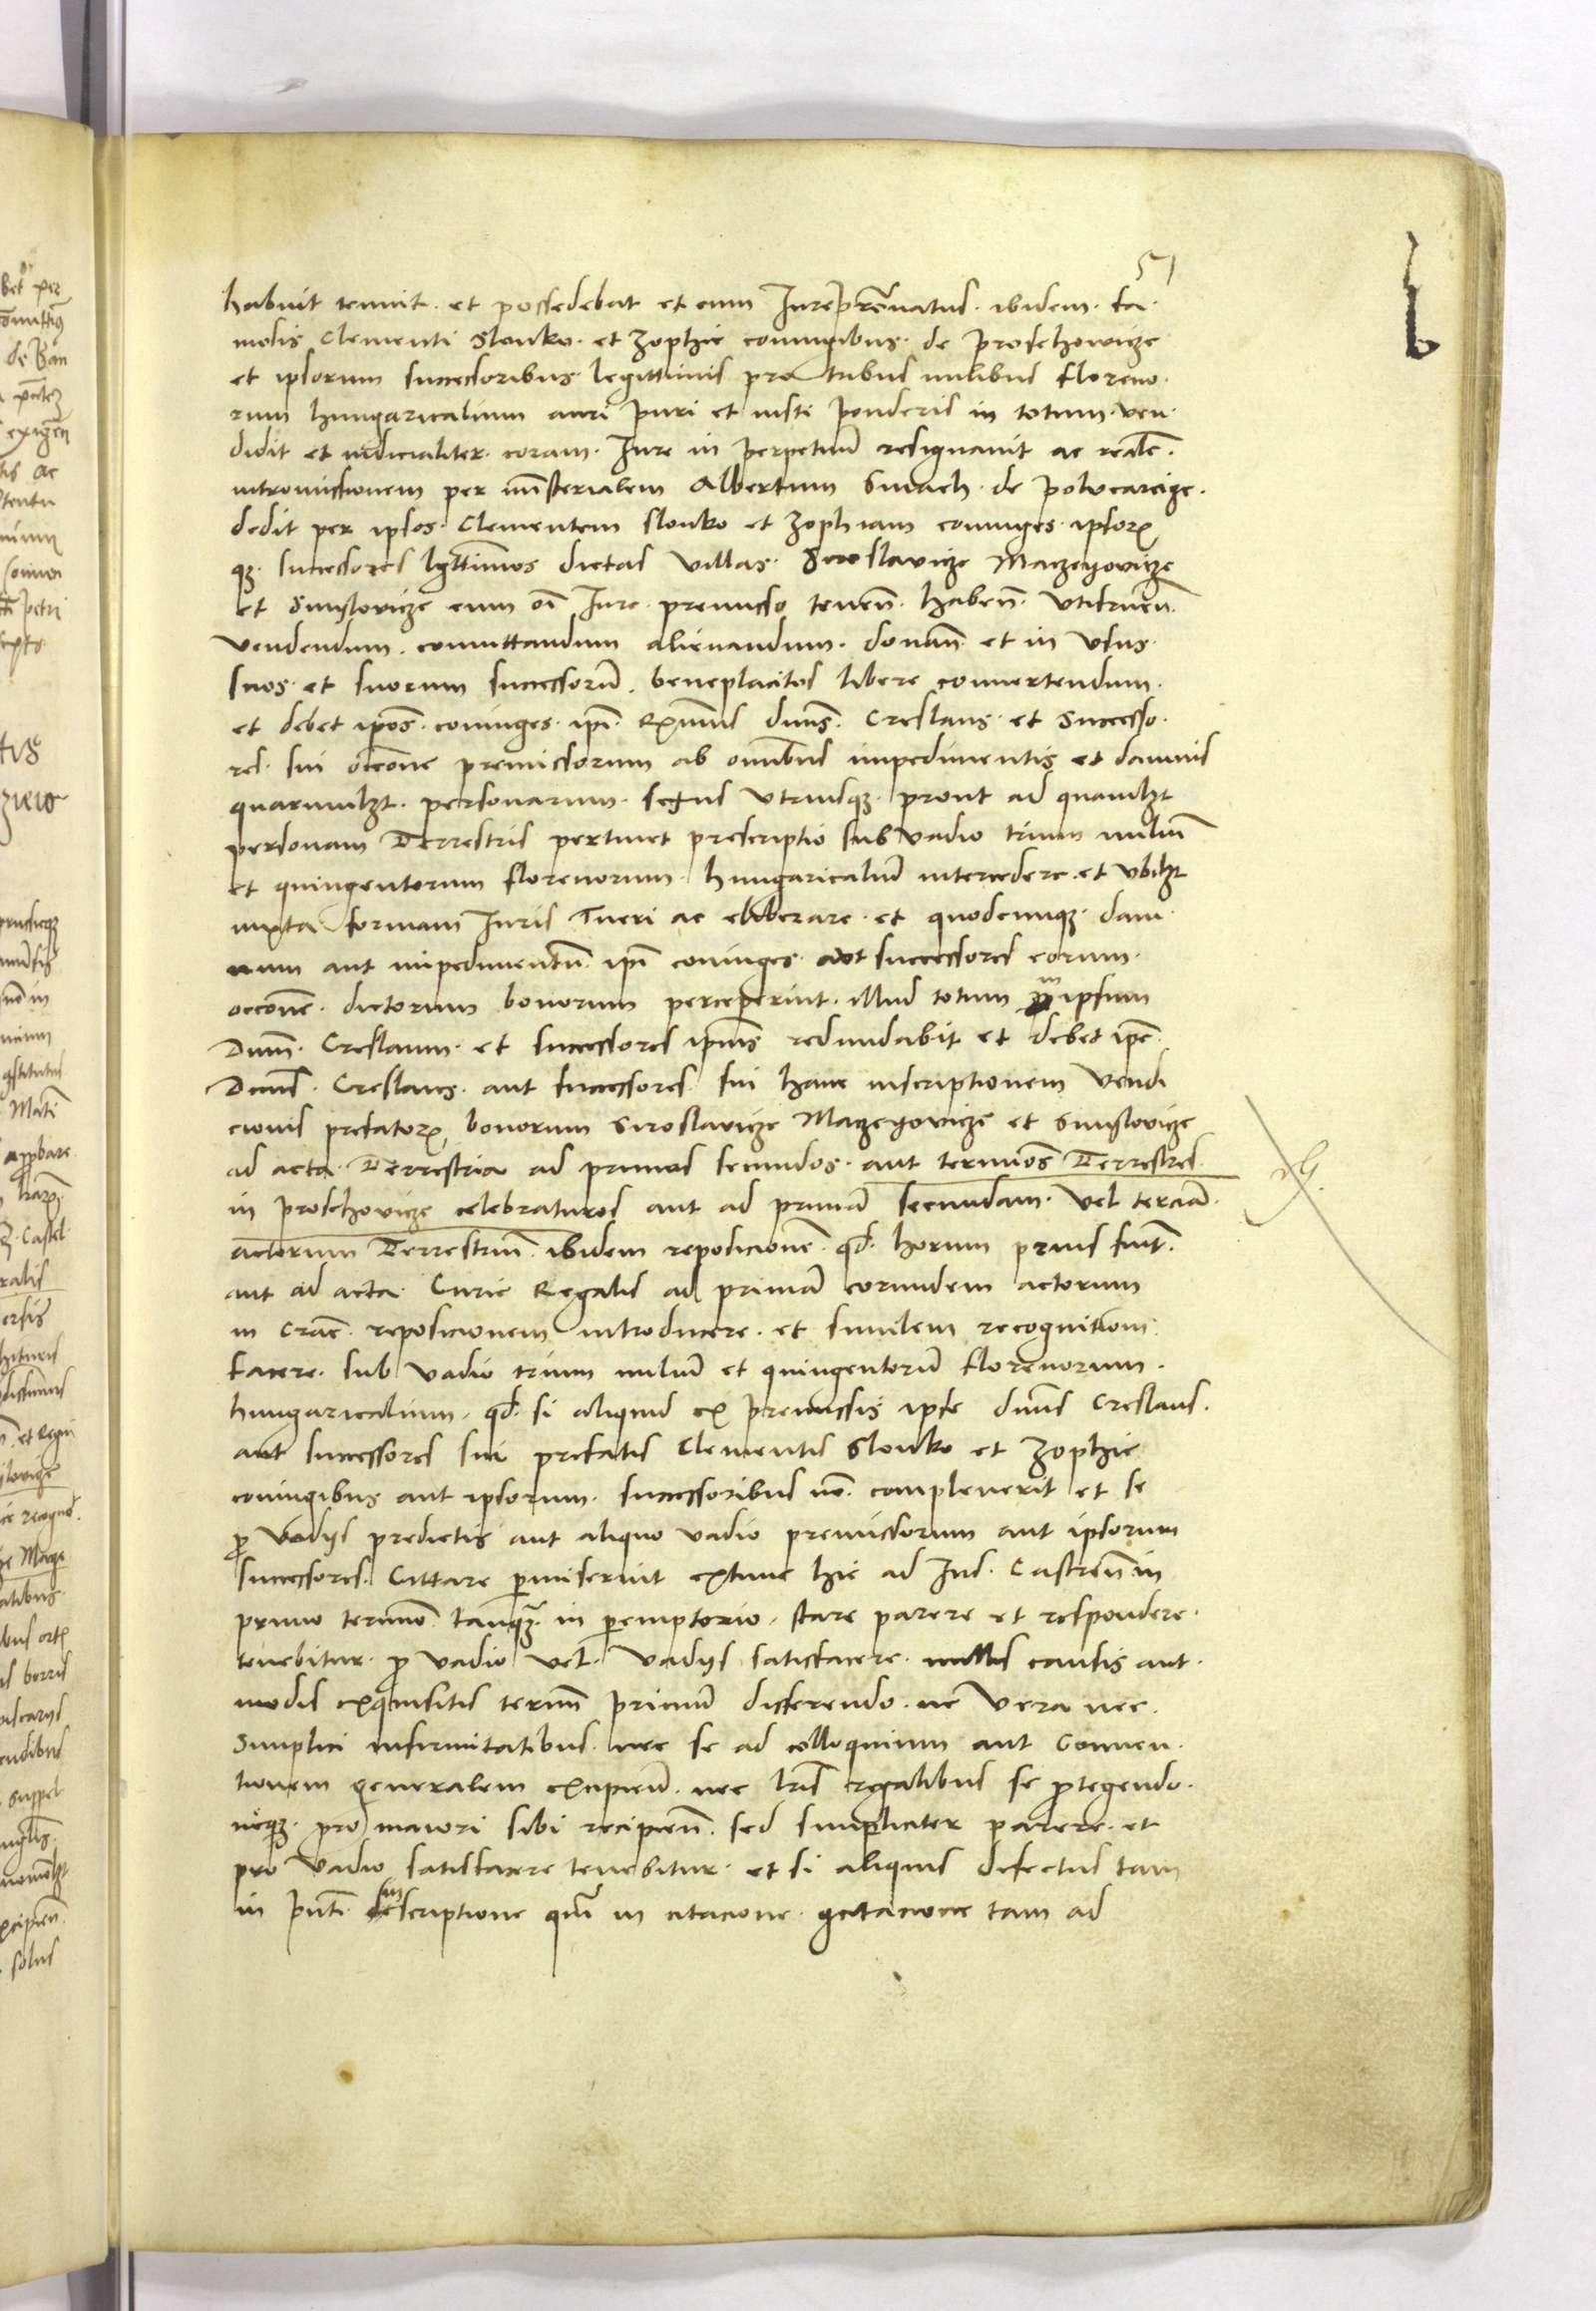 51
habuit tenuit et possedebat et cum Iurepatronatus ibidem fa
mosis Clementi Slonko et Zophie coniugibus de Proschowicze
et ipsorum successoribus legittimis pro tribus milibus floreno
rum hungaricalium auri puri et iusti ponderis in totum ven
didit et iudicialiter coram Iure in perpetuū resignavit ac realē
intromissionem per ministerialem Albertum Smach de
dedit per ipsos Clementem Slonko et Zophiam coniuges ipsorꝝ
qꝫ successores lgittimos dictas villas Siroslavicze Maczeyovicze
et cum oī Iure premisso tenen̄ haben̄ utifruen̄
vendendum comuttandum alienandum donan̄ et in usus
suos et suorum successorū beneplacitos libere convertendum
et debet ipōs coniuges ipē dn̄s Creslaus et Successo
res sui occone premissorum ab omnibus impedimentis et damnis
quarumlꝫt personarum sexus utriusqꝫ prout ad quamlꝫt
personam Terrestris pertinet prescriptio sub vadio trium miliū
et quingentorum florenorum hungaricaliū intercedere et ubilꝫt
iuxta formam Iuris Tueri ac eliberare et quodcunqꝫ dam
num aut impedimentū ipī coniuges aut successores eorum
occone dictorum bonorum perceperint illud totum in ipsum
Dnm̄ Creslaum et successores ipius redundabit et debet ipē
Dns̄ Creslaus aut successores sui hanc inscriptionem Vendi
cionis prefatorꝝ bonorum Siroslavicze Maczeyovicze et
ad acta Terrestria ad primos secundos aut terminos Terrestres
in Proschovicze celebraturos aut ad primā secundam vel terciā
actorum Terrestriū ibidem reposicionē qd̄ horum prius fuit
aut ad acta Curie Regalis ad primā eorundem actorum
in Crac̄ reposicionem introducere et similem recognitionem
facere sub vadio trium miliū et quingentorū florenorum
hungaricalium qd̄ si aliquid ex premissis ipse dn̄s Creslaus
aut successores sui prefatis Clementis Slonko et Zophie
coniugibus aut ipsorum successoribus nō compleverit et se
ꝓ vadiis predictis aut aliquo vadio premissorum aut ipsorum
successores Cittare permiserint extunc hic ad Iud Castren̄ in
primo termino tanqꝫ in peremptorio stare parere et respondere
tenebitur ꝓ vadio vel vadiis satisfacere nullis causis aut
modis exquisitis terminū primū differendo nē vera nec
simplici infirmitatibus nec se ad colloquium aut Conven
tionem generalem excipiens nec lris regalibus se protegendo
neqꝫ pro maiori sibi recipien̄ sed simpliciter parere et
pro vadio satisfacere tenebitur et si aliquis defectus tam
in pnti inscriptione quā in citacione tam ad